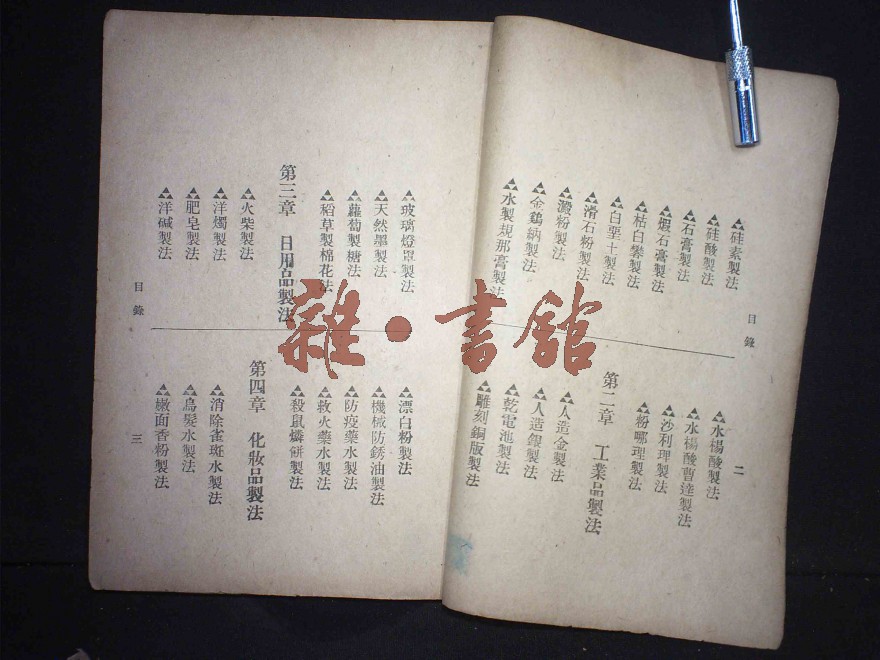 目錄
二
硅素製法
硅酸製法
石膏製法
煆石膏製法
枯白礬製法
白堊土製法
滑石粉製法
澱粉製法
金鷄納製法
水製規那膏製法
水楊酸製法
水楊酸曹達製法
沙利理製法
粉哪理製法
第二章 工業品製法
人造金製法
人造銀製法
乾電池製法
雕刻銅版製法
玻璃燈罩製法
天然墨製法
蘿蔔製糖法
稻草製棉花法
第三章 日用品製法
火柴製法
洋燭製法
肥皂製法
洋碱製法
漂白粉製法
機械防銹油製法
防疫藥水製法
救火藥水製法
殺鼠燐餅製法
第四章 化妝品製法
消除雀斑水製法
烏髮水製法
嫩面香粉製法
目錄
三
雜·書館